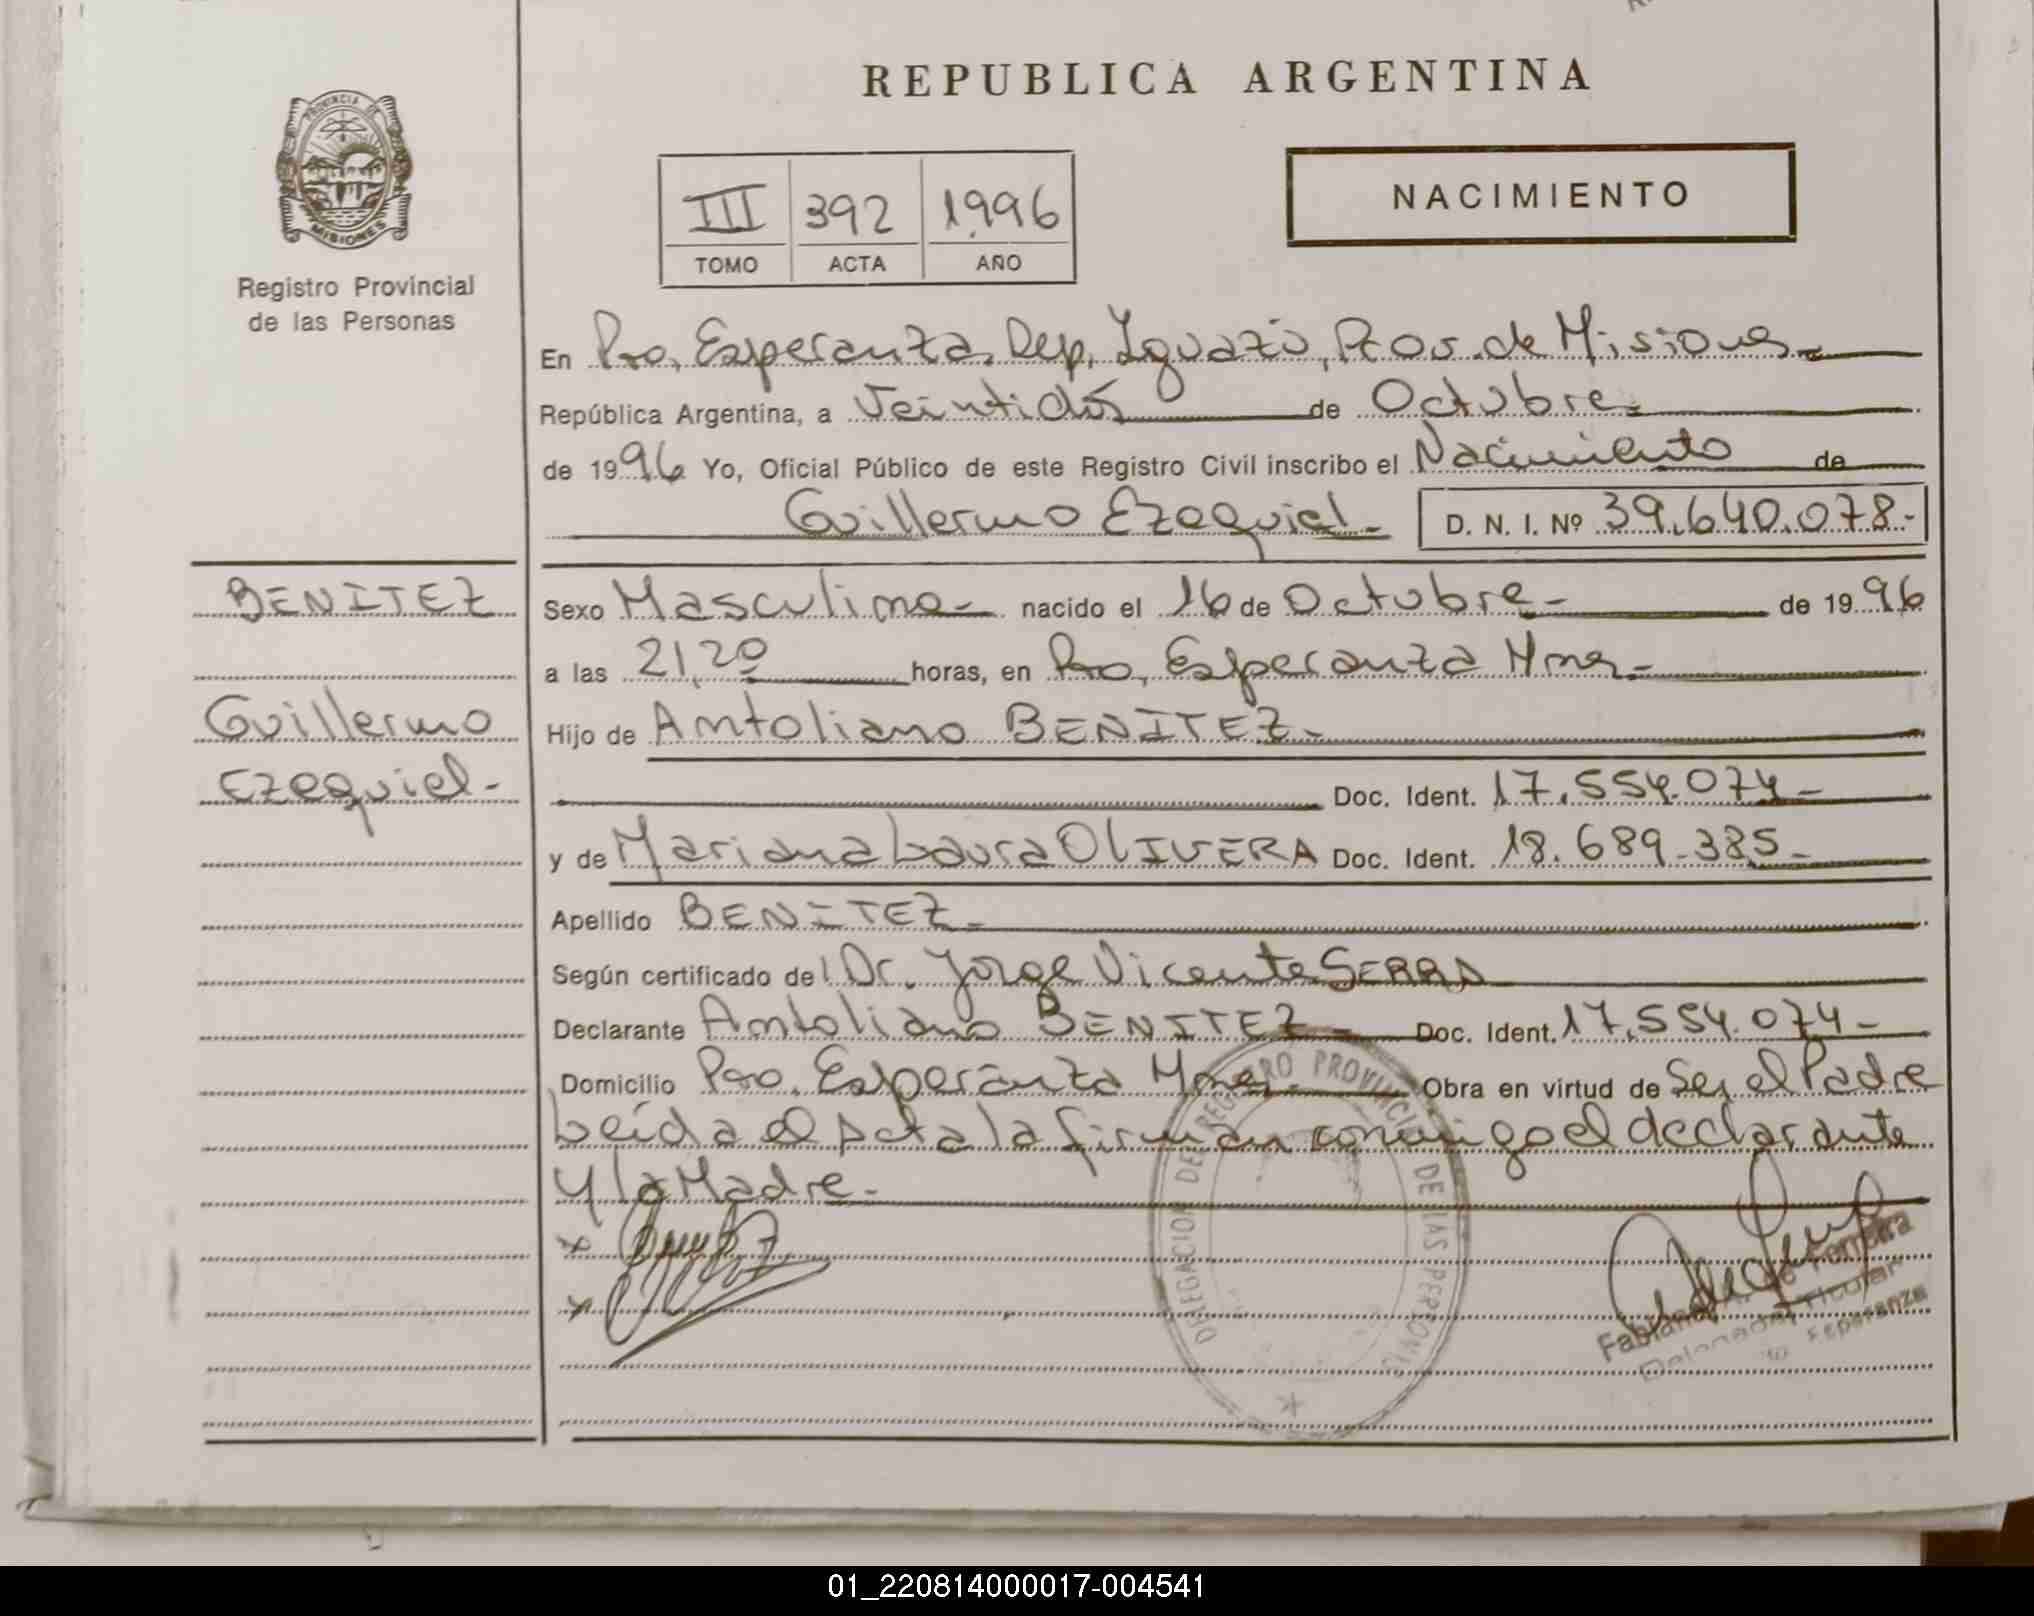 REPUBLICA ARGENTINA
PROVINCIA DE
MISIONES
Registro Provincial
de las Personas
III 392 1996
TOMO ACTA AÑO
NACIMIENTO
En Pto. Esperanza, Dep. Iguazú, Prov. de Misiones.-
República Argentina, a Veintidós de Octubre.-
de 1996 Yo, Oficial Público de este Registro Civil inscribo el Nacimiento de
Guillermo Ezequiel.- D. N. I. Nº 39.640.078-
BENITEZ
Guillermo
Ezequiel-
Sexo Masculino- nacido el 16 de Octubre- de 1996
a las 21,20 horas, en Pto. Esperanza Mnes.-
Hijo de Antoliano BENITEZ.-
Doc. Ident. 17.554.074-
y de Mariana Laura OLIVERA Doc. Ident. 18.689.385-
Apellido BENITEZ-
Según certificado del Dr. Jorge Vicente SERRA
Declarante Antoliano BENITEZ- Doc. Ident. 17.554.074-
Domicilio Pto. Esperanza Mnes.- Obra en virtud de Ser el Padre
Leída el acta la firman conmigo el declarante
y la Madre.-
DELEGACION DEL REGISTRO PROVINCIAL DE LAS PERSONAS
Ferreira
Titular
Esperanza
01_220814000017-004541